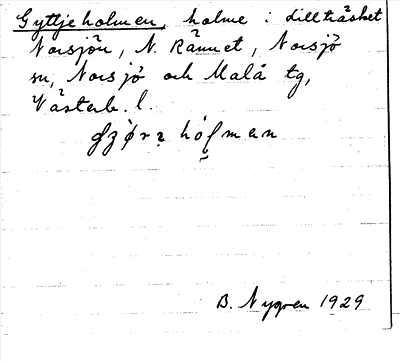 Gyttjeholmen, holme i Lillträsket
Norsjön, N. Rännet, Norsjö
sn, Norsjö och Malå tg,
Västerb. l.
hólmen
B. Nygren 1929